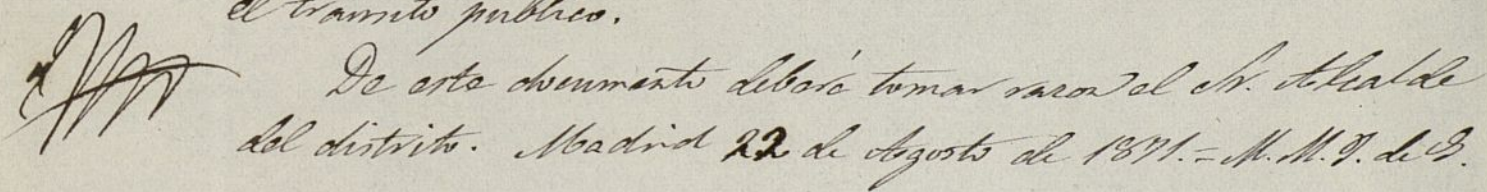 el transito publico.
De este documento deberá tomar razon el Sr. Alcalde
del distrito. Madrid 22 de Agosto de 1871.= M. M. J. de S.